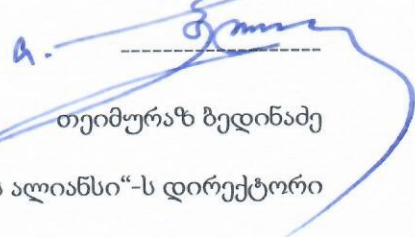 თეიმურაზ ბედინაძე
ალიანსი“-ს დირექტორი